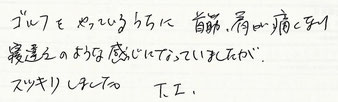 ゴルフを やっているうちに 首筋、肩が痛くなり
寝違えのような感じになっていましたが、
スッキリしました T.I.